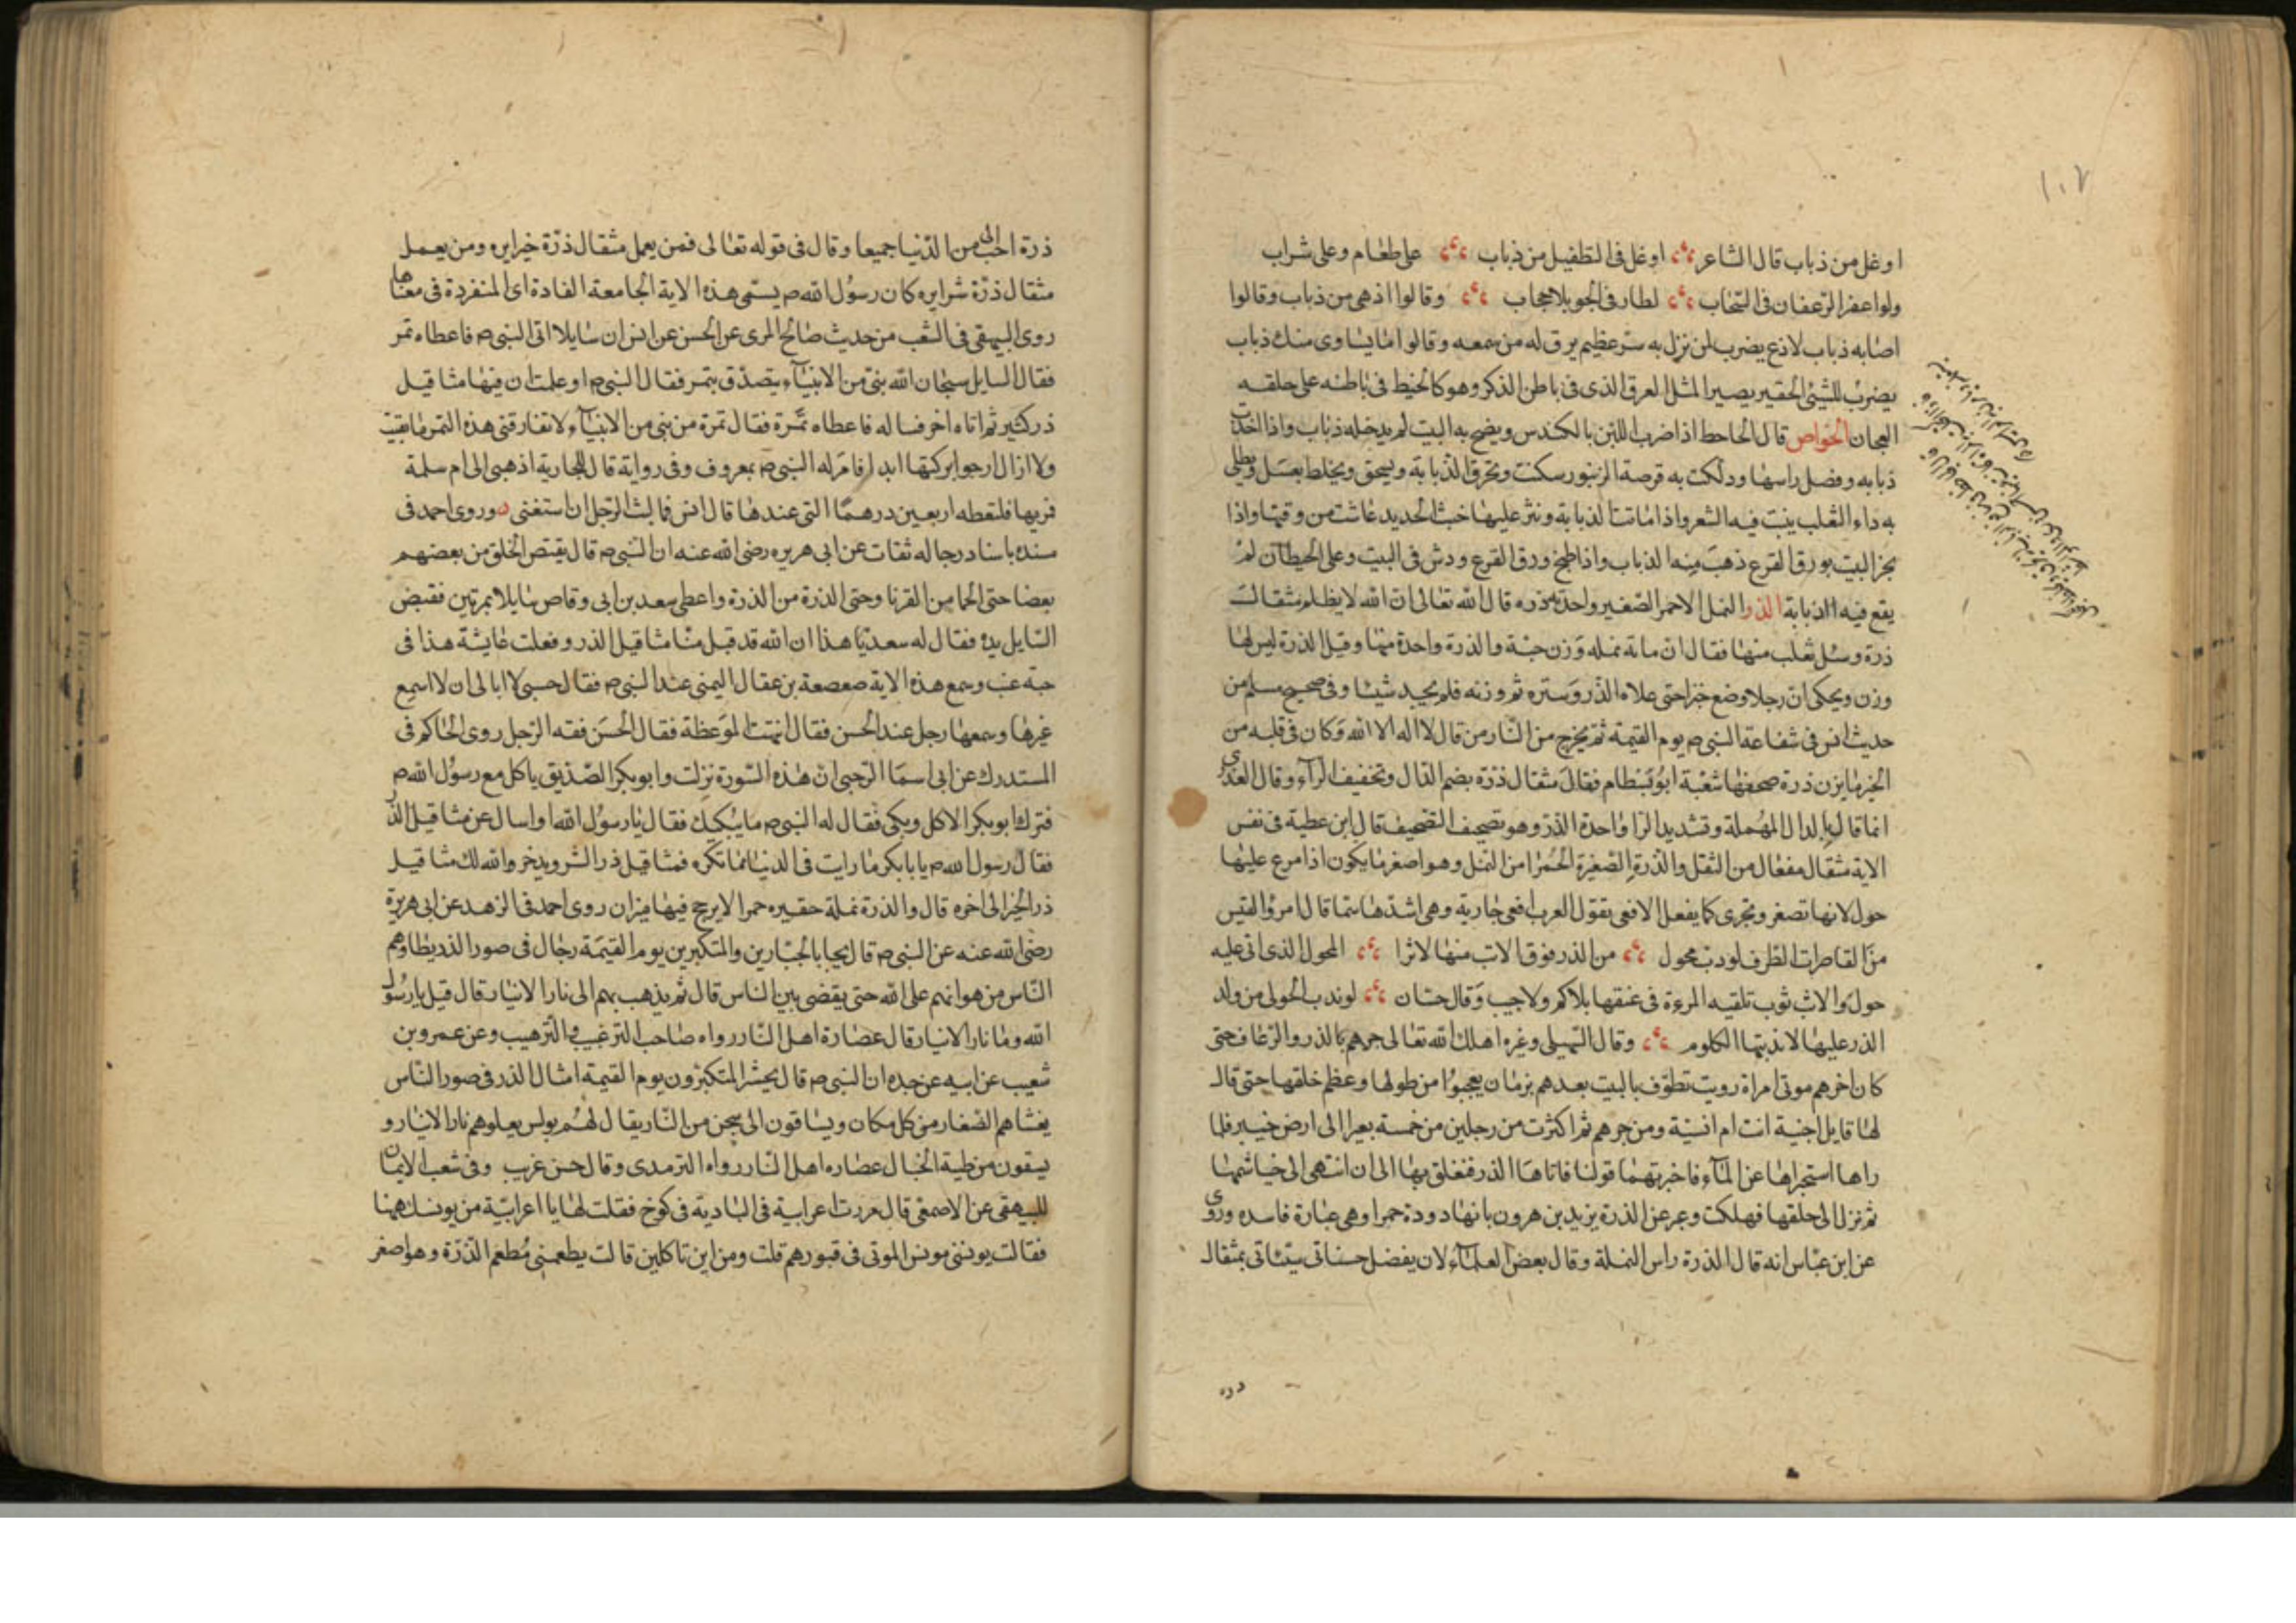 ١٠٧
اوغل من ذباب قال الشاعر اوغل فى التطفيل من ذباب على طعام وعلى شراب
ولوا عفرا الزعفان فى السحاب لطار فى الجو بلا حجاب وقالوا اذهى من ذباب وقالوا
اصابه ذباب لاذع يضرب لمن نزل به شر عظيم يرق له من سمعه وقالوا ما يساوى متك ذباب
يضرب للشيئ الحقير يصير المثل العرق الذى فى باطن الذكر وهو كالخيط فى باطنه على حلقه
العجان الخواص قال الجاحط اذا ضرب اللبن بالكندس ونضح به البيت لم يدخله ذباب واذا اخذت
ذبابه وفصل راسها ودلكت به قرصة الزنبور سكنت وتحرق الذبابة ويسحق ويخلط بعسل ويطلى
به داء الثعلب ينبت فيه الشعر واذا ماتت الذبابة ونثر عليها خبث الحديد عاشت من وقتها واذا
بخر البيت بورق القرع ذهب منه الذباب واذا طبخ ورق القرع ورش فى البيت وعلى الحيطان لم
يقع فيه الذبابة الذر النمل الاحمر الصغير واحدته ذره قال الله تعالى ان الله لا يظلم مثقال
ذرة وسئل ثعلب منها فقال ان ماتة نمله وزن حبة والذرة واحدة منها وقيل الذرة ليس لها
وزن ويحكى ان رجلا وضع خبزا حتى علاه الذر وستره ثم وزنه فلم يجد شيئا وفى صحيح مسلم من
حديث انس فى شفاعة النبى ص يوم القيمة ثم يخرج من النار من قال لا اله الا الله وكان فى قلبه من
الخير ما يزن ذرة صحفها شعبة ابو بسطام فقال مثقال ذرة بضم الذال وتخفيف الرآء وقال العبدرى
انما قال بالدال المهملة وتشديد الرا واحدة الذر وهو تصحيف التصحيف قال ابن عطية فى نفس
الاية مثقال مفعال من الثقل والذرة الصغيرة الحمرا من النمل وهو اصغر ما يكون اذا مر عليها
حول لانها تصغر وتجرى كما يفعل الافعى تقول العرب افعى جارية وهى اشدها سما قال امرؤ القيس
من القاصرات الطرف لو دب محول من الذر فوق الاتب منها لاثرا المحول الذى اتى عليه
حول والاتب ثوب تلقيه المرءة فى عنقها بلا كم ولا جيب وقال حسان لو يدب الحولى من ولد
الذر عليها لاندبتها الكلوم وقال السهيلى وغيره اهلك الله تعالى جرهم بالذر والرعاف حتى
كان اخرهم موتى امراة رويت تطوف بالبيت بعدهم بزمان يعجبوا من طولها وعظم خلقها حتى قال
لها قايل اجنية انت ام انسية ومن جرهم ثم اكثرت من رجلين من خمسة بعيرا الى ارض خيبر فلما
راها استجراها عن المآء فاخبرتهما قولنا فاتاهما الذر فتعلق بها الى ان انتهى الى خياشمها
ثم نزل الى حلقها فهلكت وعبر عن الذرة يزيد بن هرون بانها دودة حمرا وهى عبارة فاسده وروى
عن ابن عباس انه قال الذرة راس النملة وقال بعض العلمآء لان يفضل حسناتى سيئاتى بمثقال
ذره
ذرة احب الى من الدنيا جميعا وقال فى قوله تعالى فمن يعمل مثقال ذرة خيرا يره ومن يعمل
مثقال ذرة شرا يره كان رسول الله ص يسمى هذه الاية الجامعة الفادة اى المنفردة فى معناها
روى البيهقى فى الشعب من حديث صالح المرى عن الحسن عن انس ان سايلا اتى النبى ص فاعطاه تمر
فقال السايل سبحان الله بنى من الانبيآء يتصدق بتمر فقال النبى ص اوعلمت ان فيها مثاقيل
ذر كثير ثم اتاه اخر فساله فاعطاه تمرة فقال تمرة من نبى من الانبيآء لا تفارقنى هذه التمر ما بقيت
ولا ازال ارجو بركتها ابدا فامر له النبى ص بمعروف وفى رواية قال للجارية اذهبى الى ام سلمة
فريها فلتعطه اربعين درهما التى عندها قال انس فما لبث الرجل ان استغنى وروى احمد فى
مسنده باسناد رجاله ثقات عن ابى هريره رضى الله عنه ان النبى ص قال يقتص الخلق من بعضهم
بعضا حتى الجما من القرنا وحتى الذرة من الذرة واعطى سعد بن ابى وقاص سايلا تمرتين فقبض
السايل يده فقال له سعد يا هذا ان الله قد قبل منا مثاقيل الذر وفعلت عايشة هذا فى
حبة عنب وسمع هذه الاية صعصعة بن عقال اليمنى عند النبى ص فقال حسبى لا ابالى ان لا اسمع
غيرها وسمعها رجل عند الحسن فقال انتهت الموعظة فقال الحسن فقه الرجل روى الحاكم فى
المستدرك عن ابى اسما الرحبى ان هذه السورة نزلت وابو بكر الصديق ياكل مع رسول الله ص
فترك ابو بكر الاكل وبكى فقال له النبى ص ما يبكيك فقال يا رسول الله اواسال عن مثاقيل الذر
فقال رسول الله ص يا ابا بكر ما رايت فى الدنيا مما تكره فمثاقيل ذر الشر ويدخر والله لك مثاقيل
ذر الخير الى اخره قال والذرة نملة حقيره حمرا لا يرجح فيها ميزان روى احمد فى الزهد عن ابى هريرة
رضى الله عنه عن النبى ص قال يجا بالجبارين والمتكبرين يوم القيمة رجال فى صور الذر يطاوهم
الناس من هوانهم على الله حتى يقضى بين الناس قال ثم يذهب بهم الى نار الانيار قال قيل يا رسول
الله وما نار الانيار قال عصارة اهل النار رواه صاحب الترغيب والترهيب وعن عمرو بن
شعيب عن ابيه عن جده ان النبى ص قال يحشر المتكبرون يوم القيمة امثال الذر فى صور الناس
يغشاهم الصغار من كل مكان ويساقون الى سجن من النار يقال لهم بولس يعلوهم نار الانيار و
يسقون من طية الخبال عصاره اهل النار رواه الترمدى وقال حسن غريب وفى شعب الايمان
للبيهقى عن الاصمعى قال مررت اعرابية فى البادية فى كوخ فقلت لها يا اعرابية من يونسك ههنا
فقالت يونسنى مونس الموتى فى قبورهم قلت ومن اين تاكلين قالت يطعمنى مطعم الذرة وهو اصغر